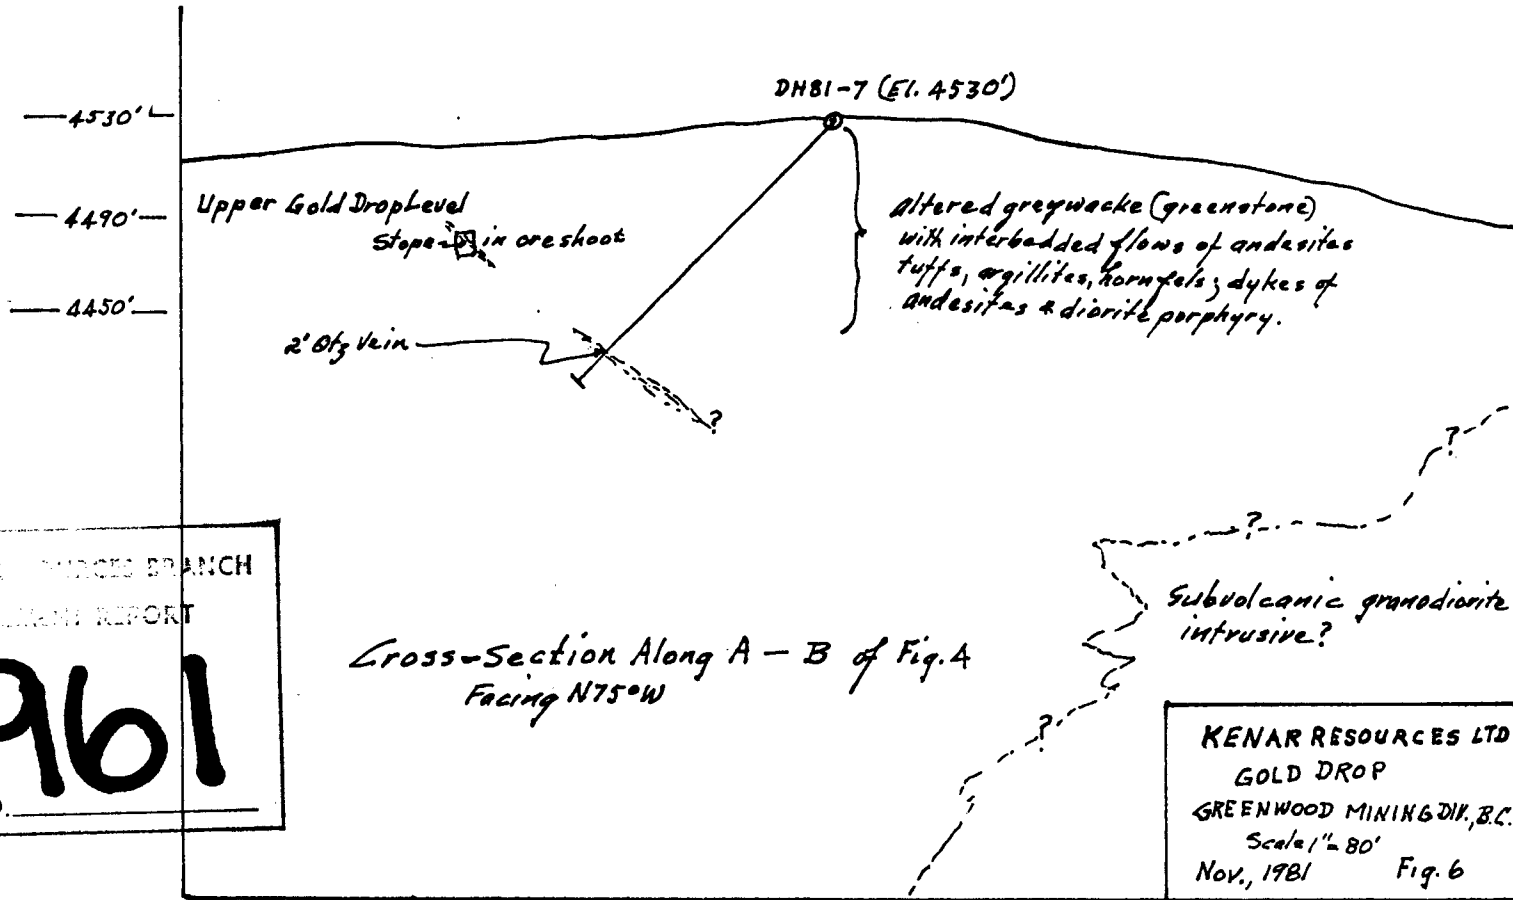 DH81-7 (El. 4530')
4530'
4490'
4450'
Upper Gold Drop Level
Stope in oreshoot
altered greywacke (greenstone)
with interbedded flows of andesites
tuffs, argillites, hornfels; dykes of
andesites & diorite porphyry.
2' Qtz Vein
?
?
?
?
Subvolcanic granodiorite
intrusive?
BRANCH
REPORT
961
Cross-Section Along A - B of Fig. 4
Facing N75°W
KENAR RESOURCES LTD
GOLD DROP
GREENWOOD MINING DIV., B.C.
Scale 1" = 80'
Nov., 1981 Fig. 6